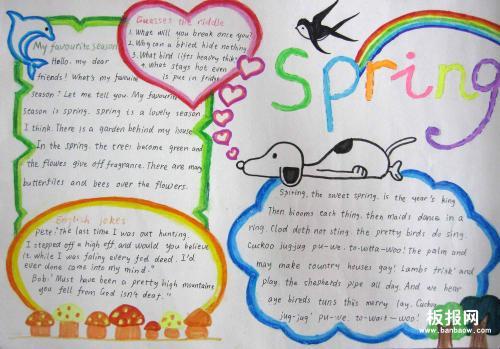 My favourite season
Hello, my dear
friends! What's my favourite
season? Let me tell you. My favourite
season is spring. spring is a lovely season
I think. There is a garden behind my house
In the spring. the trees become green and
the flowes give off fragrance. There are many
butterflies and bees over the flowers.
Guesses the riddle
1. What will you break once you?
2. Why can a bried hide nothing
3. What bird lifts headvy thik?
4. What stays hot even
is put in fridge
Spring
English jokes
Pete: The last time I was out hunting.
I stepped off a high eff and would you believe
it while I was faling every fed deed. I'd
ever done came into my mind."
Bob: "Must have been a pretty high mountaine
you fell from God isn't deaf."
Spiring. the sweet spring. is the year's king
Then blooms tach thing. then maids dance in a
ring. Clod doth not sting. the pretty birds do sing.
Cuckoo jug-jug pu-we. to-witta-woo! The palm and
may make country houses gay! Lambs frisk and
play. the shepherds pipe all day. And we hear
aye bireds tuns this merry lay. Cuckoo
jug-jug' pu-we. to-wait-woo!
板报网
www.banbaow.com